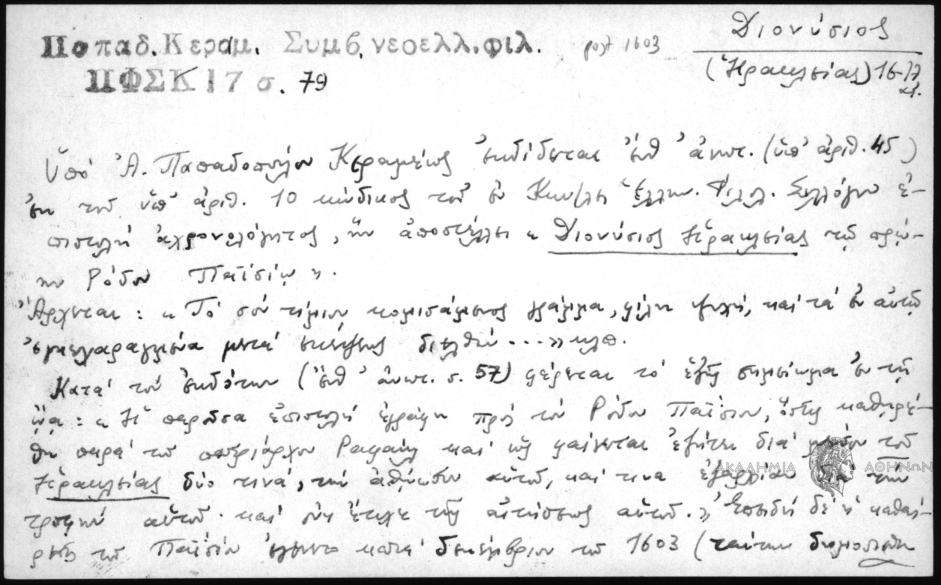 Παπαδ. Κεραμ. Συμβ. νεοελλ. φιλ. post 1603 Διονύσιος
ΠΦΣΚ 17 σ. 79 (Ἡρακλείας) 16-17 αἰ.
Ὑπὸ Ἀ. Παπαδοπούλου Κεραμέως ἐκδίδεται ἔνθ' ἀνωτ. (ὑπ' ἀριθ. 45)
ἐκ τοῦ ὑπ' ἀριθ. 10 κώδικος τοῦ ἐν Κων/λει Ἑλλην. Φιλολ. Συλλόγου ἐ-
πιστολὴ ἀχρονολόγητος, ἣν ἀποστέλλει « Διονύσιος Ἡρακλείας τῷ πρώ-
ην Ῥόδου Παϊσίῳ ».
Ἄρχεται: « Τὸ σὸν τίμιον κομισάμενος γράμμα, φίλη ψυχή, καὶ τὰ ἐν αὐτῷ
ἐγκεχαραγμένα μετὰ σκέψεως διελθὼν ...» κλπ.
Κατὰ τὸν ἐκδότην (ἔνθ' ἀνωτ. σ. 57) φέρεται τὸ ἑξῆς σημείωμα ἐν τῇ
ᾤᾳ: « Ἡ παροῦσα ἐπιστολὴ ἐγράφη πρὸς τὸν Ῥόδου Παΐσιον, ὅστις καθῃρέ-
θη παρὰ τοῦ πατριάρχου Ραφαὴλ καὶ ὡς φαίνεται ἐζήτει διὰ μέσου τοῦ
Ἡρακλείας δύο τινά, τὴν ἀθώωσιν αὐτοῦ, καὶ τινα ἐξαρχίαν διὰ τὴν
τροφὴν αὐτοῦ καὶ οὐκ ἔτυχε τῆς αἰτήσεως αὐτοῦ.» Ἐπειδὴ δὲ ἡ καθαί-
ρεσις τοῦ Παϊσίου ἐγένετο κατὰ δεκέμβριον τοῦ 1603 (ταύτην
ΑΚΑΔΗΜΙΑ ΑΘΗΝΩΝ